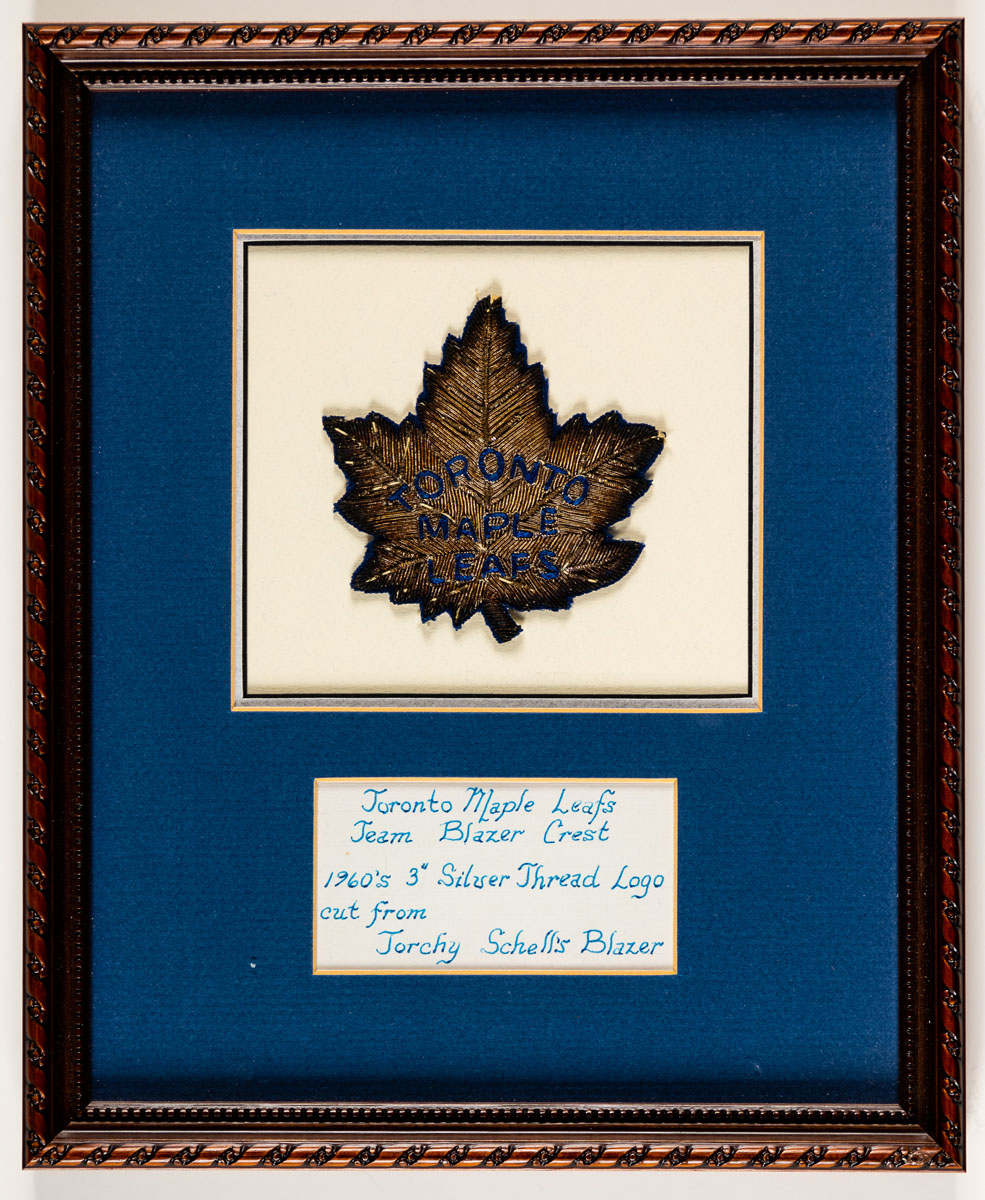 TORONTO
MAPLE
LEAFS
Toronto Maple Leafs
Team Blazer Crest
1960's 3" Silver Thread Logo
cut from
Torchy Schell's Blazer